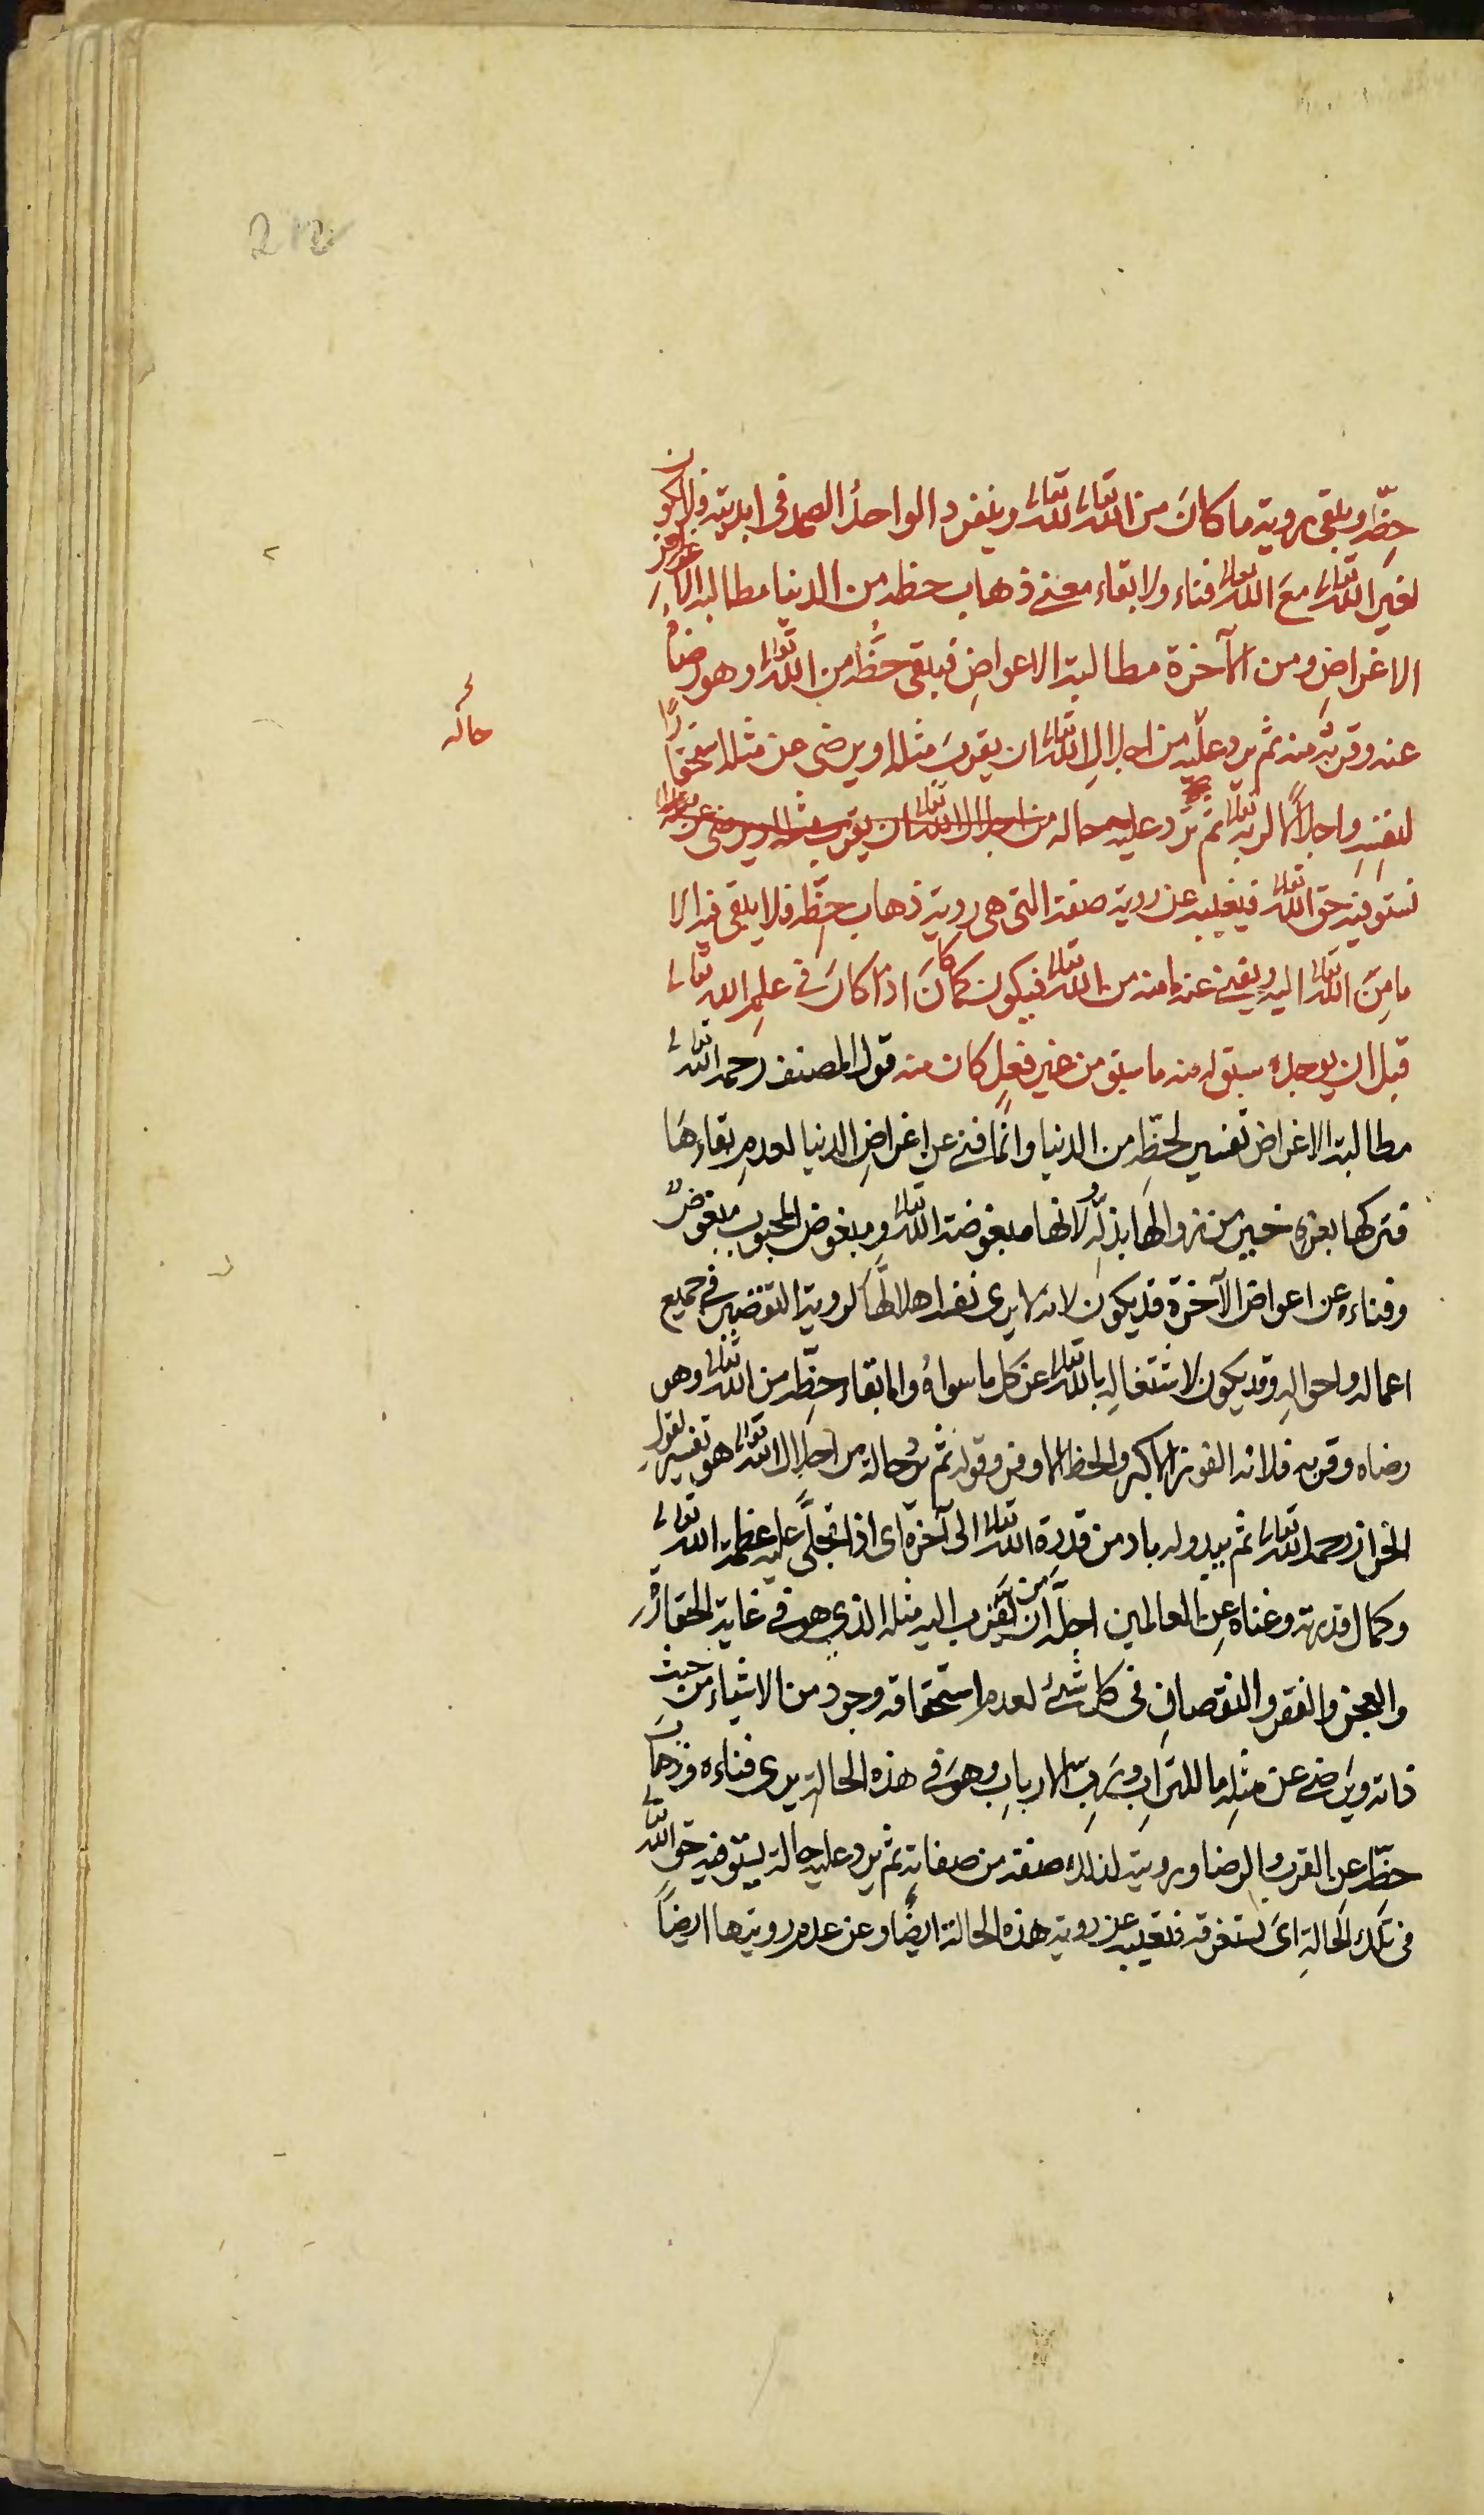 212
حظّه ويبقى روية ما كانَ من الله تعالى لله تعالى وينفرد الواحدُ الصمد فى ابديته فلا يكون
لغير الله تعالى معَ الله تعالى فناء ولا بقاء معنى ذهاب حظه من الدنيا مطالبة
الاغراضِ ومن الآخرة مطالبة الاعواضِ فيبقى حظُّه من الله تعالى وهو رضاهُ
عنه وقربُه منه ثم يرد عليه من اجلالِ الله تعالى ان يقربَ مثله او يرضى عن مثله استحقارًا
لنفسِه واجلالًا لربّه تعالى ثم تَرد عليه حاله من اجلال الله تعالى ان يقرب مثله او يرضى عن مثله
تستوفيه حق الله تعالى فيغيبه عن روية صفته التى هى روية ذهاب حظّه فلا يبقى فيه الا
ما مِنَ الله تعالى اليه ويفنى عنه ما منه من الله تعالى فيكون كما كانَ اذ كانَ فى علمِ الله تعالى
قبل ان يوجدهُ سبق له منه ما سبق من غير فعلٍ كان منه قول المصنف رحمه الله تعالى
مطالبة الاغراض تفسير لحظِّه من الدنيا وانّما فنى عن اغراضِ الدنيا لعدمِ بقاءِهَا
فتركها بعزه خير من زوالها بذلّه لانها مبغوضة الله تعالى ومبغوض المحبوب مبغوضٌ
وفناءه عن اعواض الآخرة قد يكون لانه لا يرى نفسه اهلا لهَا لروية التقصير فى جميع
اعماله واحوالِه وقد يكون لاشتغالِه بالله تعالى عن كل ما سواهُ واما بقاء حظِّه من الله تعالى وهو
رضاه وقربه فلانه الفوز الاكبر والحظ الاوفر وقوله ثم تردُ حالة من اجلال الله تعالى هو تفسير لقولِ
الخراز رحمه الله تعالى ثم يبدو له باد من قدرة الله تعالى الى آخره اى اذا تجلَّى عليه عظمة الله تعالى
وكمال قدرته وغناه عِن العالمين اجلَّه من ان يقرب اليه مثله الذى هو فى غاية الحقارة
والعجز والفقر والنقصانِ فى كل شىءٍ لعدم استحقاقه وجود من الاشياء من حيث
ذاته ويرضى عن مثلِه ما للترابِ وربِ الاربابِ وهوَ فى هذه الحالةِ يرى فناءه وذهاب
حظِّه عن القرب والرضا ورويته لذلك صفة من صفاتِه ثم يرد عليه حالة يستوفيه حق الله تعالى
فى تلك الحالةِ اى تستغرقه فتغيبه عن روية هذه الحالة ايضًا وعن عدم رويتها ايضاً
حاله